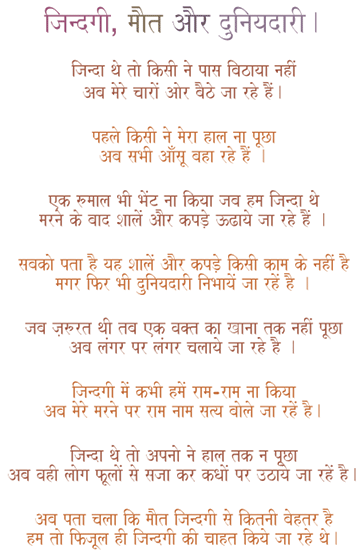 जिन्दगी, मौत और दुनियदारी।
जिन्दा थे तो किसी ने पास विठाया नहीं
अव मेरे चारों ओर वैठे जा रहे हैं।
पहले किसी ने मेरा हाल ना पूछा
अव सभी आँसू वहा रहे हैं ।
एक रुमाल भी भेंट ना किया जव हम जिन्दा थे
मरने के वाद शालें और कपड़े ऊढाये जा रहे हैं ।
सवको पता है यह शालें और कपड़े किसी काम के नहीं है
मगर फिर भी दुनियदारी निभायें जा रहें है ।
जव ज़रुरत थी तव एक वक्त का खाना तक नहीं पूछा
अव लंगर पर लंगर चलाये जा रहे है ।
जिन्दगी में कभी हमें राम-राम ना किया
अव मेरे मरने पर राम नाम सत्य वोले जा रहें है।
जिन्दा थे तो अपनो ने हाल तक न पूछा
अव वही लोग फूलों से सजा कर कधों पर उठाये जा रहें है।
अव पता चला कि मौत जिन्दगी से कितनी वेहतर है
हम तो फिजूल ही जिन्दगी की चाहत किये जा रहे थे।